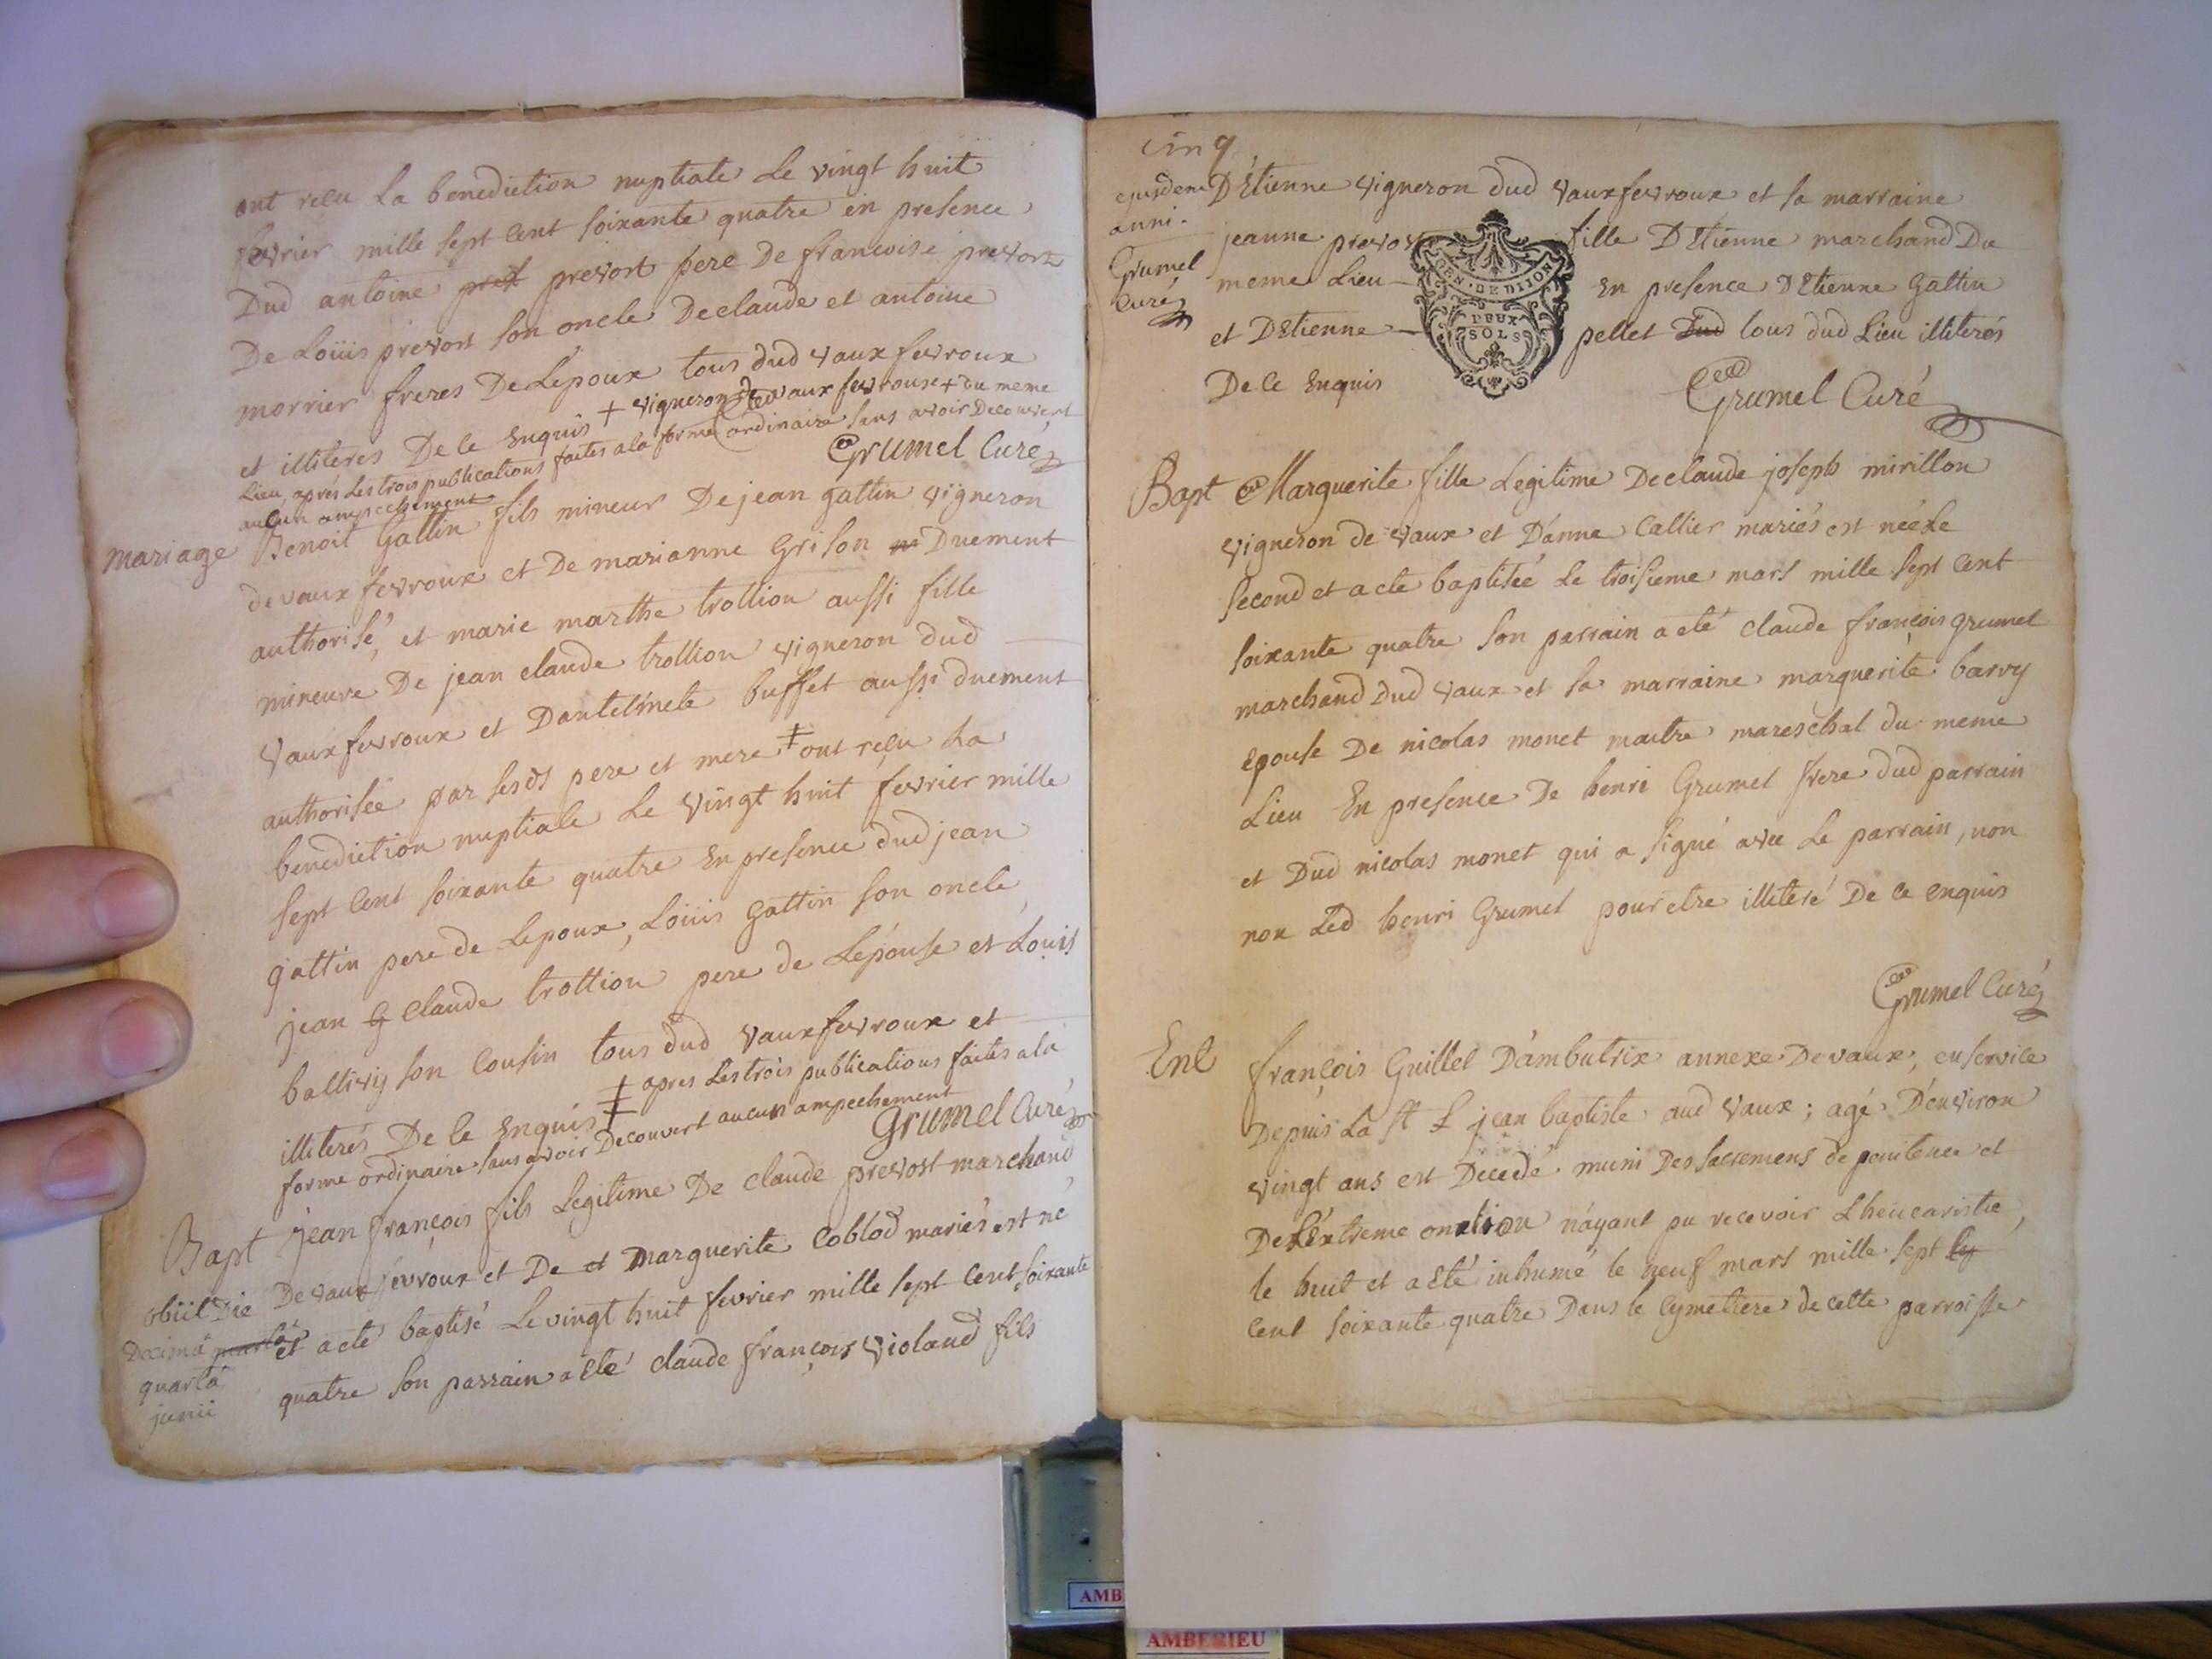 ont reçu la benediction nuptiale le vingt huit
fevrier mille sept cent soixante quatre en presence
Dud antoine prevost pere De francoise prevost
De Loüis prevost son oncle De claude et antoine
morrier freres De Lepoux tous dud vaux fevroux
et illiteres De ce Enquis + vigneron vaux fevroux + du meme
Lieu, aprés Les trois publications faites a la forme ordinaire sans avoir Decouvert
aucun ampechement
Grumel Curé
mariage Benoit Gattin fils mineur De jean gattin vigneron
de vaux fevroux et De marianne Grison Duement
authorisé, et marie marthe trottion aussi fille
mineure De jean claude trottion vigneron dud
vaux fevroux et buffet aussi duement
authorisée par sesds pere et mere ‡ ont reçu La
benediction nuptiale Le vingt huit fevrier mille
sept cent soixante quatre En presence dud jean
gattin pere de Lepoux, Loüis gattin son oncle,
jean claude trottion pere de Lépouse et Louis
son Cousin tous dud vaux fevroux et
illiterés De ce Enquis ‡ apres Les trois publications faites a la
forme ordinaire sans avoir Decouvert aucun ampechement
Grumel Curé
Bapt jean françois fils Legitime De claude prevost marchand
De vaux fevroux et De et marguerite Coblod mariés est né
et a eté baptisé Le vingt huit fevrier mille sept cent soixante
quatre son parrain a eté claude françois violand fils
obiit Die
Decimâ
quartâ
junii
cinq
ejusdem
anni.
Grumel
Curé
D'Etienne vigneron dud vaux fevroux et sa marraine
jeanne prevost fille D'Etienne marchand Du
meme Lieu En presence D'Etienne Gattin
et D'Etienne pellet Dud tous dud Lieu illiterés
De ce Enquis
GEN · DE DIJON
DEUX
SOLS
Grumel Curé
Bapt Marguerite fille Legitime De claude joseph mirillon
vigneron de vaux et D'anne Callier mariés est née Le
second et a ete baptisée Le troisieme mars mille sept cent
soixante quatre son parrain a eté claude françois grumel
marchand dud vaux et sa marraine marguerite barvy
epouse De nicolas monet maitre mareschal du meme
Lieu En presence De henri Grumel frere dud parrain
et Dud nicolas monet qui a signé avec Le parrain, non
non Led henri Grumel pour etre illiteré De ce enquis
Grumel Curé
Ent françois Guillet D'ambutrix annexe De vaux, en service
Depuis La St jean baptiste aud vaux; agé D'environ
vingt ans est Decedé muni Des sacremens de penitence et
De L'extreme onction n'ayant pu recevoir L'heucaristie,
le huit et a eté inhumé le neuf mars mille sept
cent soixante quatre Dans le Cymetiere de cette parroisse
AMB
AMBERIEU